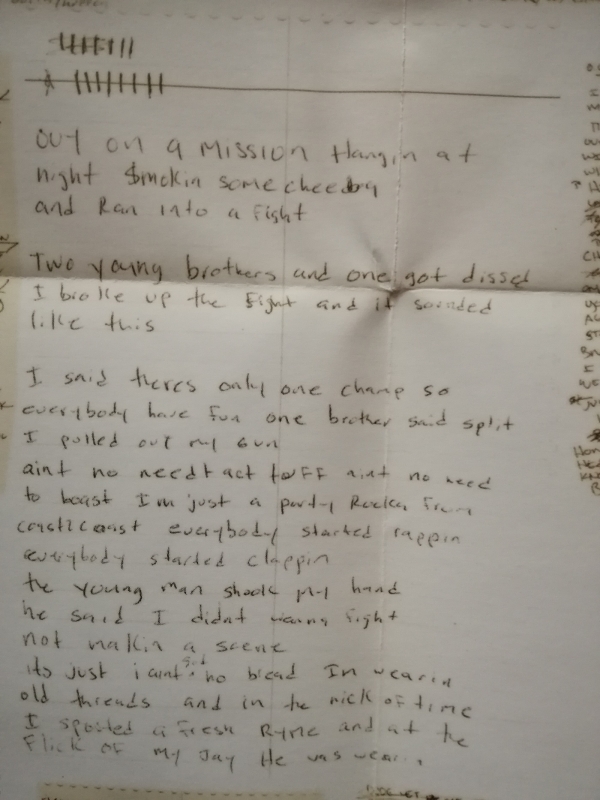 OUT ON A MISSION Hangin at
night Smokin some cheeba
and Ran into a Fight
Two young brothers and one got dissed
I broke up the Fight and it sounded
like this
I said theres only one champ so
everybody have Fun one brother said split
I pulled out my Gun
aint no need t act tuFF aint no need
to boast Im just a party Rocka From
coast2coast everybody started rappin
everybody started clappin
the young man shook my hand
he said I didnt wanna Fight
not makin a scene
its just i aint got no bread Im wearin
old threads and in the nick of time
I spotted a Fresh Ryme and at the
Flick of my Jay He was wearin